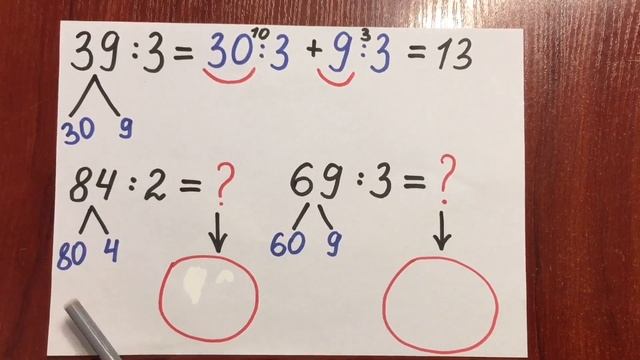 10 3
39 : 3 = 30 : 3 + 9 : 3 = 13
30 9
84 : 2 = ? 69 : 3 = ?
80 4 60 9